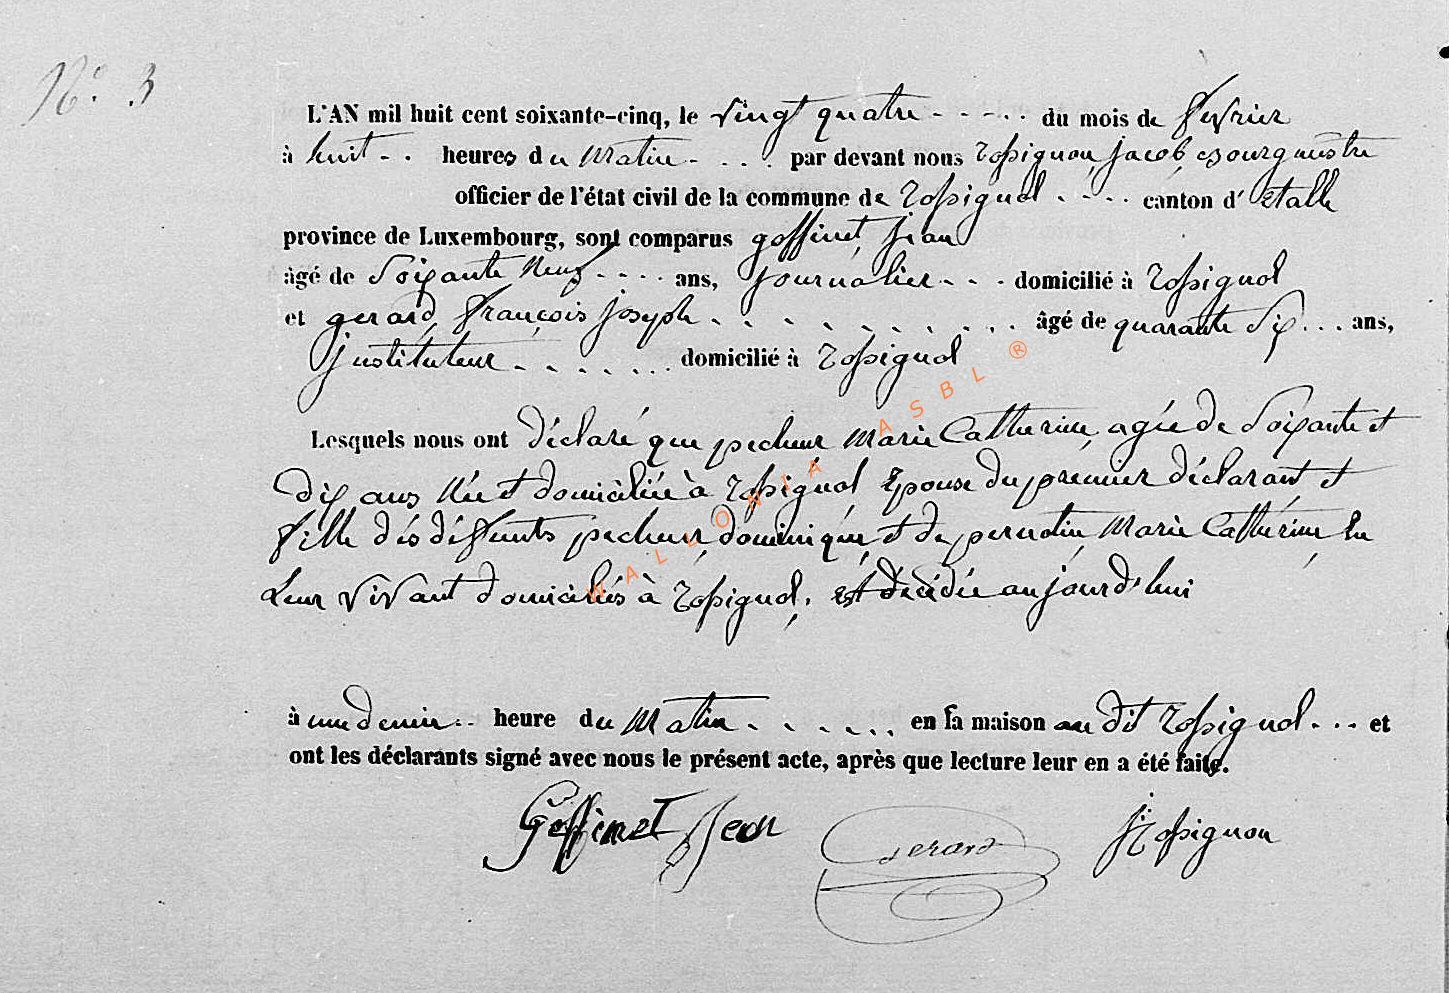 N° 3
L'AN mil huit cent soixante-cinq, le vingt quatre - - - - . du mois de fevrier
à huit - . heures du matin - . . . par devant nous Rossignon, jacob, bourgmestre
officier de l'état civil de la commune de Rossignol . - - . canton d' Etalle
province de Luxembourg, sont comparus goffinet, jean
âgé de soixante neuf - - - . ans, journalier - - . domicilié à Rossignol
et gerard, françois joseph . . . . . . . . . . . âgé de quarante six . . . ans,
instituteur . . . . . . . domicilié à Rossignol
Lesquels nous ont déclaré que pecheur marie Catherine, agée de soixante et
dix ans née et domiciliée à Rossignol, Epouse du premier déclarant et
fille des défunts pecheur, dominique, et de pernotin, marie Catherine, en
leur vivant domiciliés à Rossignol, est décédée aujourd'hui
à une demie . . heure du matin . . . . . . en sa maison au dit Rossignol . . . et
ont les déclarants signé avec nous le présent acte, après que lecture leur en a été faite.
Goffinet Jean Gerard J Rossignon
WALLONIA ASBL ®